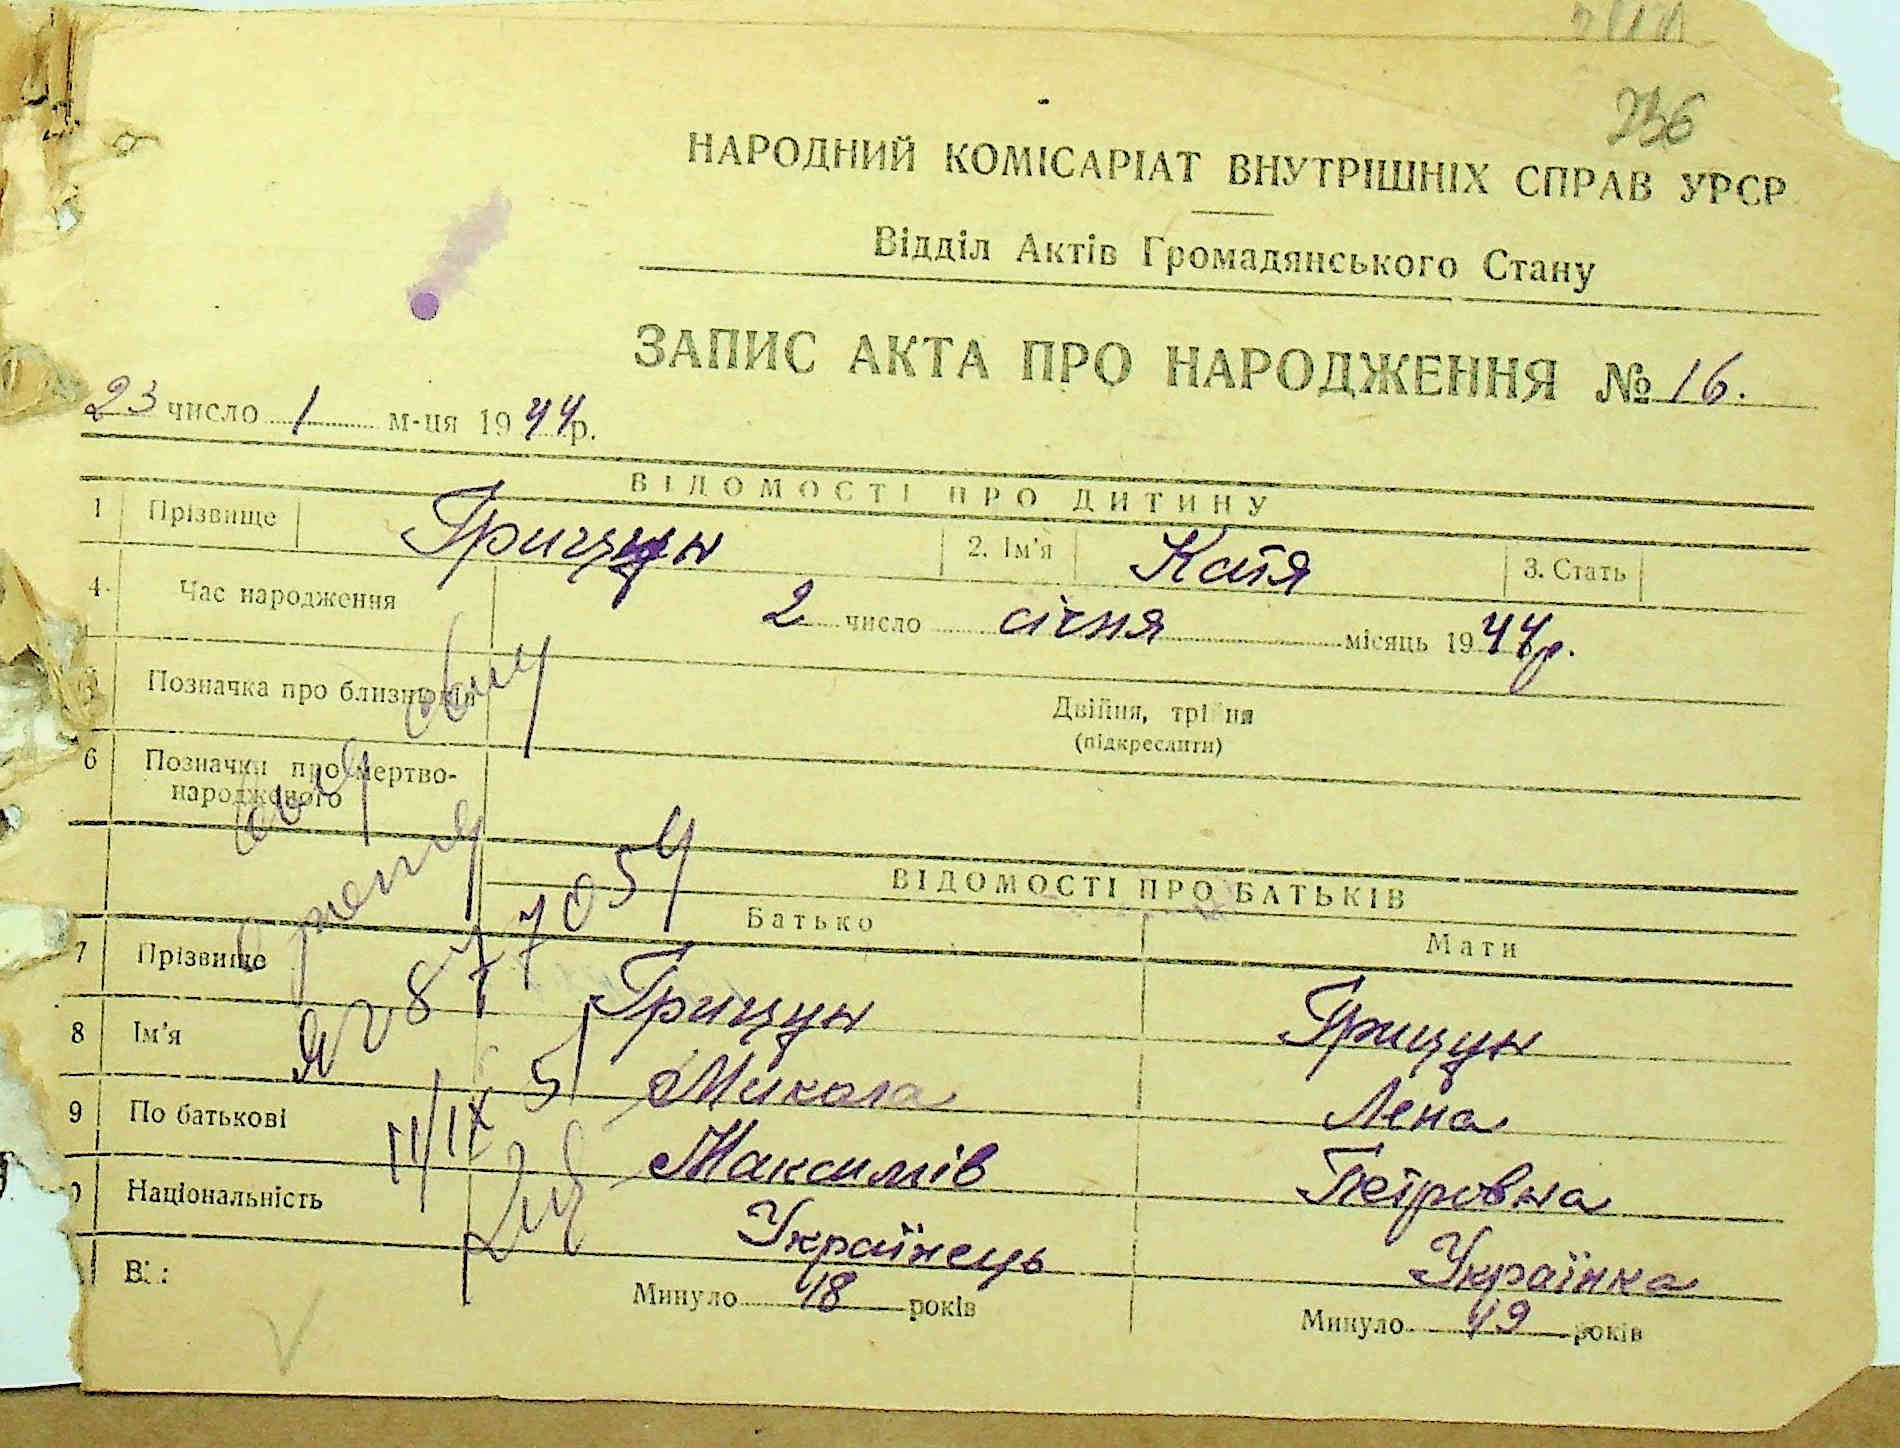 236
НАРОДНИЙ КОМІСАРІАТ ВНУТРІШНІХ СПРАВ УРСР
Відділ Актів Громадянського Стану
ЗАПИС АКТА ПРО НАРОДЖЕННЯ № 16.
23 число 1 м-ця 1944р.
ВІДОМОСТІ ПРО ДИТИНУ
1 Прізвище Грицун 2. Ім'я Катя 3. Стать
4. Час народження 2 число січня місяць 1944р.
Позначка про близнюків Двійня, трійня
(підкреслити)
6 Позначки про мертво-
народженого
ВІДОМОСТІ ПРО БАТЬКІВ
Батько Мати
7 Прізвище Грицун Грицун
8 Ім'я Микола Лена
9 По батькові Максимів Петровна
Національність Українець Українка
Минуло 48 років Минуло 49 років
877054
11/IX 51